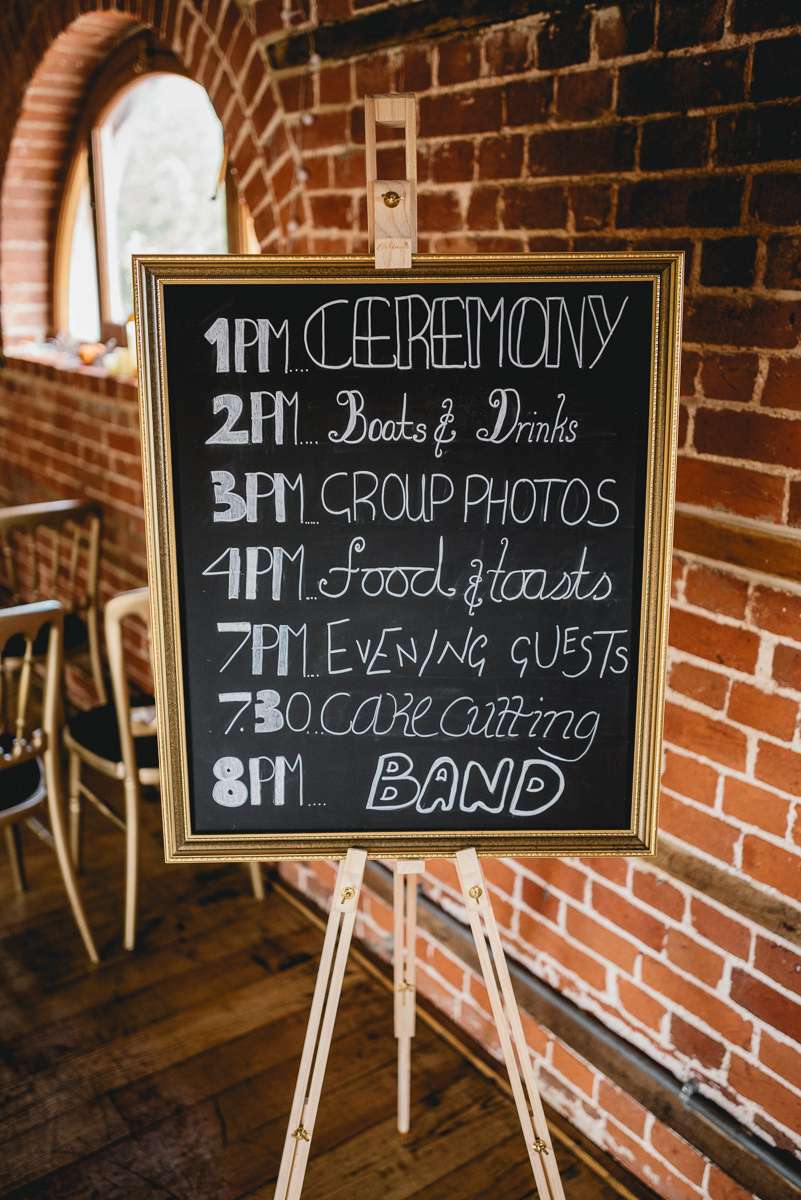 1PM....CEREMONY
2PM....Boats & Drinks
3PM....GROUP PHOTOS
4PM...food & toasts
7PM...EVENING GUESTS
7.30...Cake Cutting
8PM.... BAND